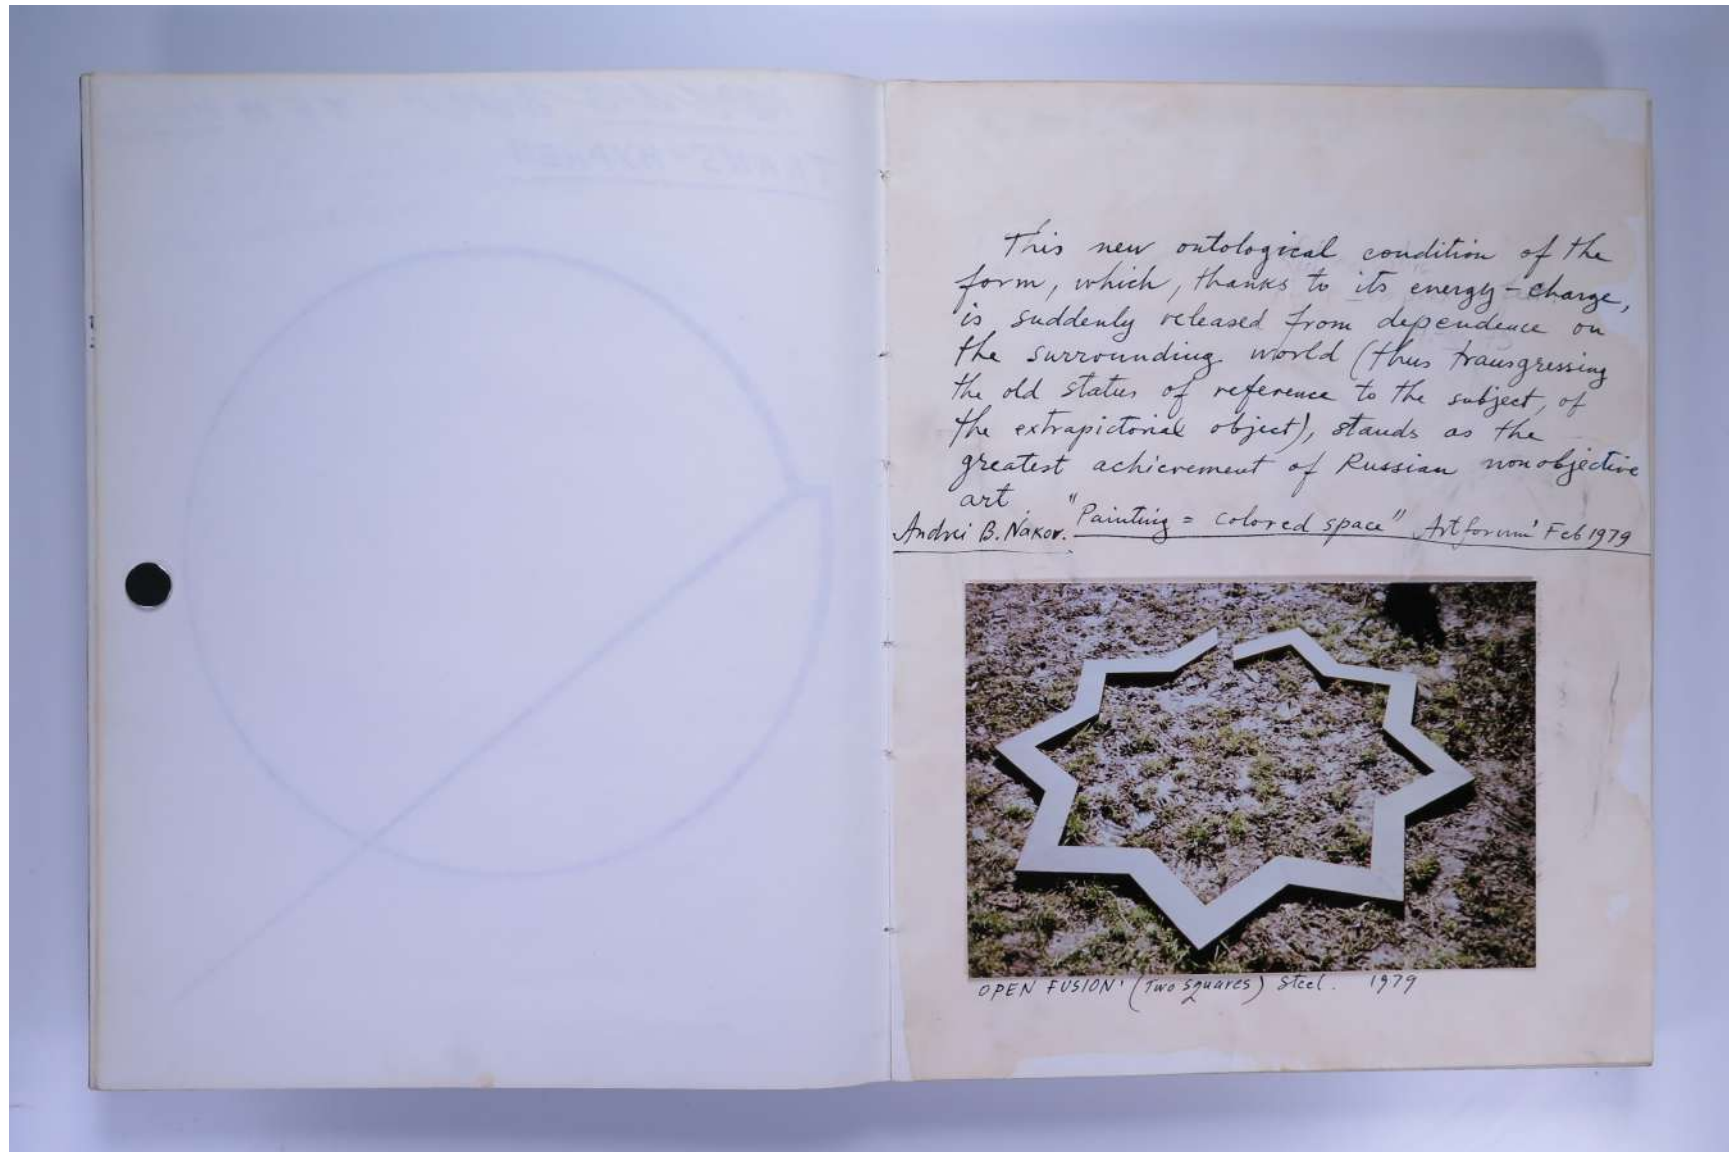 This new ontological condition of the
form, which, thanks to its energy-charge,
is suddenly released from dependence on
the surrounding world (thus transgressing
the old status of reference to the subject, of
the extrapictorial object), stands as the
greatest achievement of Russian nonobjective
art.
Andrei B. Nakov. "Painting = colored space" Artforum' Feb 1979
OPEN FUSION' (Two squares) Steel. 1979